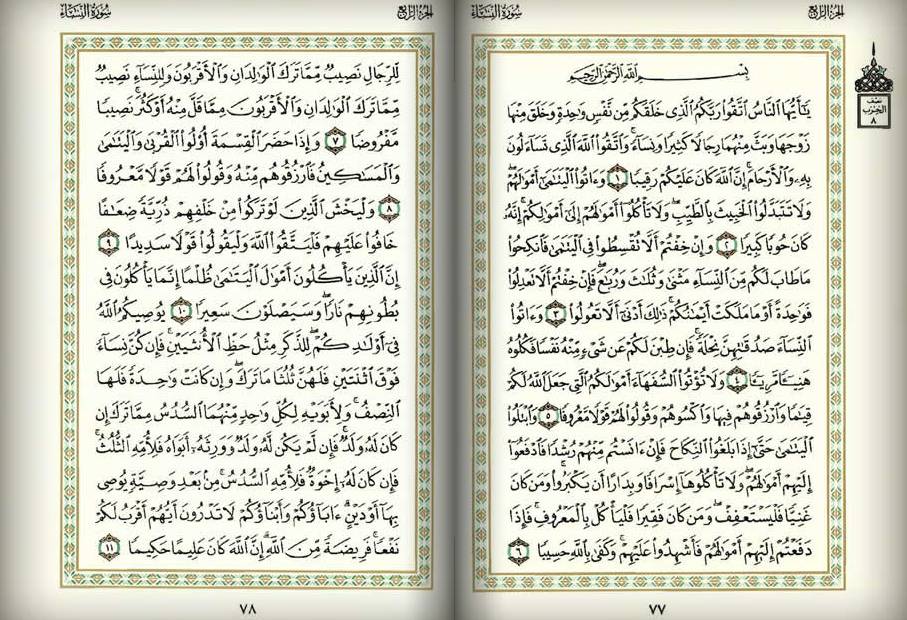 سُورَةُ النِّسَاءِ
الجُزْءُ الرَّابِعُ
نصف
الحزب
٨
بِسْمِ اللَّهِ الرَّحْمَٰنِ الرَّحِيمِ
يَٰٓأَيُّهَا ٱلنَّاسُ ٱتَّقُوا۟ رَبَّكُمُ ٱلَّذِى خَلَقَكُم مِّن نَّفْسٍ وَٰحِدَةٍ وَخَلَقَ مِنْهَا
زَوْجَهَا وَبَثَّ مِنْهُمَا رِجَالًا كَثِيرًا وَنِسَآءً ۚ وَٱتَّقُوا۟ ٱللَّهَ ٱلَّذِى تَسَآءَلُونَ
بِهِۦ وَٱلْأَرْحَامَ ۚ إِنَّ ٱللَّهَ كَانَ عَلَيْكُمْ رَقِيبًا ١ وَءَاتُوا۟ ٱلْيَتَٰمَىٰٓ أَمْوَٰلَهُمْ ۖ
وَلَا تَتَبَدَّلُوا۟ ٱلْخَبِيثَ بِٱلطَّيِّبِ ۖ وَلَا تَأْكُلُوٓا۟ أَمْوَٰلَهُمْ إِلَىٰٓ أَمْوَٰلِكُمْ ۚ إِنَّهُۥ
كَانَ حُوبًا كَبِيرًا ٢ وَإِنْ خِفْتُمْ أَلَّا تُقْسِطُوا۟ فِى ٱلْيَتَٰمَىٰ فَٱنكِحُوا۟
مَا طَابَ لَكُم مِّنَ ٱلنِّسَآءِ مَثْنَىٰ وَثُلَٰثَ وَرُبَٰعَ ۖ فَإِنْ خِفْتُمْ أَلَّا تَعْدِلُوا۟
فَوَٰحِدَةً أَوْ مَا مَلَكَتْ أَيْمَٰنُكُمْ ۚ ذَٰلِكَ أَدْنَىٰٓ أَلَّا تَعُولُوا۟ ٣ وَءَاتُوا۟
ٱلنِّسَآءَ صَدُقَٰتِهِنَّ نِحْلَةً ۚ فَإِن طِبْنَ لَكُمْ عَن شَىْءٍ مِّنْهُ نَفْسًا فَكُلُوهُ
هَنِيٓـًٔا مَّرِيٓـًٔا ٤ وَلَا تُؤْتُوا۟ ٱلسُّفَهَآءَ أَمْوَٰلَكُمُ ٱلَّتِى جَعَلَ ٱللَّهُ لَكُمْ
قِيَٰمًا وَٱرْزُقُوهُمْ فِيهَا وَٱكْسُوهُمْ وَقُولُوا۟ لَهُمْ قَوْلًا مَّعْرُوفًا ٥ وَٱبْتَلُوا۟
ٱلْيَتَٰمَىٰ حَتَّىٰٓ إِذَا بَلَغُوا۟ ٱلنِّكَاحَ فَإِنْ ءَانَسْتُم مِّنْهُمْ رُشْدًا فَٱدْفَعُوٓا۟
إِلَيْهِمْ أَمْوَٰلَهُمْ ۖ وَلَا تَأْكُلُوهَآ إِسْرَافًا وَبِدَارًا أَن يَكْبَرُوا۟ ۚ وَمَن كَانَ
غَنِيًّا فَلْيَسْتَعْفِفْ ۖ وَمَن كَانَ فَقِيرًا فَلْيَأْكُلْ بِٱلْمَعْرُوفِ ۚ فَإِذَا
دَفَعْتُمْ إِلَيْهِمْ أَمْوَٰلَهُمْ فَأَشْهِدُوا۟ عَلَيْهِمْ ۚ وَكَفَىٰ بِٱللَّهِ حَسِيبًا ٦
٧٧
سُورَةُ النِّسَاءِ
الجُزْءُ الرَّابِعُ
لِّلرِّجَالِ نَصِيبٌ مِّمَّا تَرَكَ ٱلْوَٰلِدَانِ وَٱلْأَقْرَبُونَ وَلِلنِّسَآءِ نَصِيبٌ
مِّمَّا تَرَكَ ٱلْوَٰلِدَانِ وَٱلْأَقْرَبُونَ مِمَّا قَلَّ مِنْهُ أَوْ كَثُرَ ۚ نَصِيبًا
مَّفْرُوضًا ٧ وَإِذَا حَضَرَ ٱلْقِسْمَةَ أُو۟لُوا۟ ٱلْقُرْبَىٰ وَٱلْيَتَٰمَىٰ
وَٱلْمَسَٰكِينُ فَٱرْزُقُوهُم مِّنْهُ وَقُولُوا۟ لَهُمْ قَوْلًا مَّعْرُوفًا
٨ وَلْيَخْشَ ٱلَّذِينَ لَوْ تَرَكُوا۟ مِنْ خَلْفِهِمْ ذُرِّيَّةً ضِعَٰفًا
خَافُوا۟ عَلَيْهِمْ فَلْيَتَّقُوا۟ ٱللَّهَ وَلْيَقُولُوا۟ قَوْلًا سَدِيدًا ٩
إِنَّ ٱلَّذِينَ يَأْكُلُونَ أَمْوَٰلَ ٱلْيَتَٰمَىٰ ظُلْمًا إِنَّمَا يَأْكُلُونَ فِى
بُطُونِهِمْ نَارًا ۖ وَسَيَصْلَوْنَ سَعِيرًا ١٠ يُوصِيكُمُ ٱللَّهُ
فِىٓ أَوْلَٰدِكُمْ ۖ لِلذَّكَرِ مِثْلُ حَظِّ ٱلْأُنثَيَيْنِ ۚ فَإِن كُنَّ نِسَآءً
فَوْقَ ٱثْنَتَيْنِ فَلَهُنَّ ثُلُثَا مَا تَرَكَ ۖ وَإِن كَانَتْ وَٰحِدَةً فَلَهَا
ٱلنِّصْفُ ۚ وَلِأَبَوَيْهِ لِكُلِّ وَٰحِدٍ مِّنْهُمَا ٱلسُّدُسُ مِمَّا تَرَكَ إِن
كَانَ لَهُۥ وَلَدٌ ۚ فَإِن لَّمْ يَكُن لَّهُۥ وَلَدٌ وَوَرِثَهُۥٓ أَبَوَاهُ فَلِأُمِّهِ ٱلثُّلُثُ ۚ
فَإِن كَانَ لَهُۥٓ إِخْوَةٌ فَلِأُمِّهِ ٱلسُّدُسُ ۚ مِنۢ بَعْدِ وَصِيَّةٍ يُوصِى
بِهَآ أَوْ دَيْنٍ ۗ ءَابَآؤُكُمْ وَأَبْنَآؤُكُمْ لَا تَدْرُونَ أَيُّهُمْ أَقْرَبُ لَكُمْ
نَفْعًا ۚ فَرِيضَةً مِّنَ ٱللَّهِ ۗ إِنَّ ٱللَّهَ كَانَ عَلِيمًا حَكِيمًا ١١
٧٨